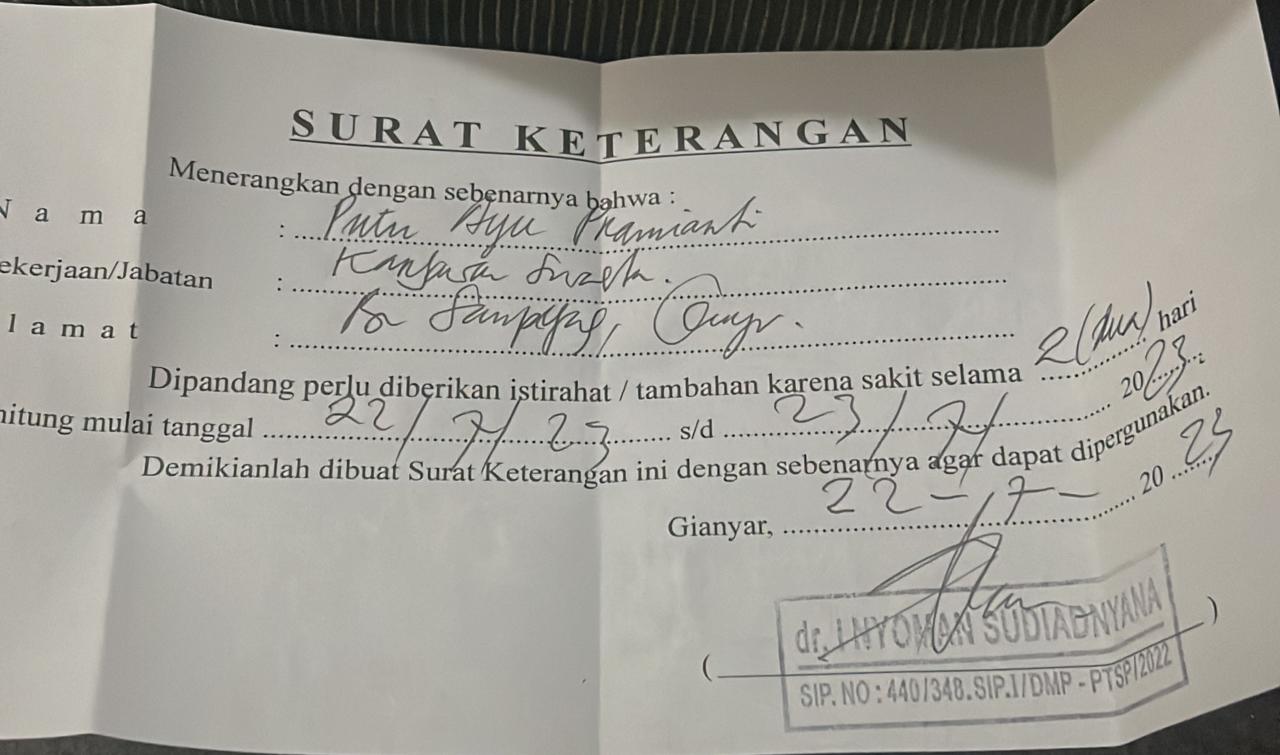 SURAT KETERANGAN
Menerangkan dengan sebenarnya bahwa :
N a m a : Putu Ayu Pramianti
ekerjaan/Jabatan :
l a m a t : Br
Dipandang perlu diberikan istirahat / tambahan karena sakit selama 2 (dua) hari
hitung mulai tanggal 22/7/23 s/d 23/7/ 2023
Demikianlah dibuat Surat Keterangan ini dengan sebenarnya agar dapat dipergunakan.
Gianyar, 22-7- 2023
dr. I NYOMAN SUDIADNYANA
( )
SIP. NO : 440/348.SIP.I/DMP - PTSP/2022